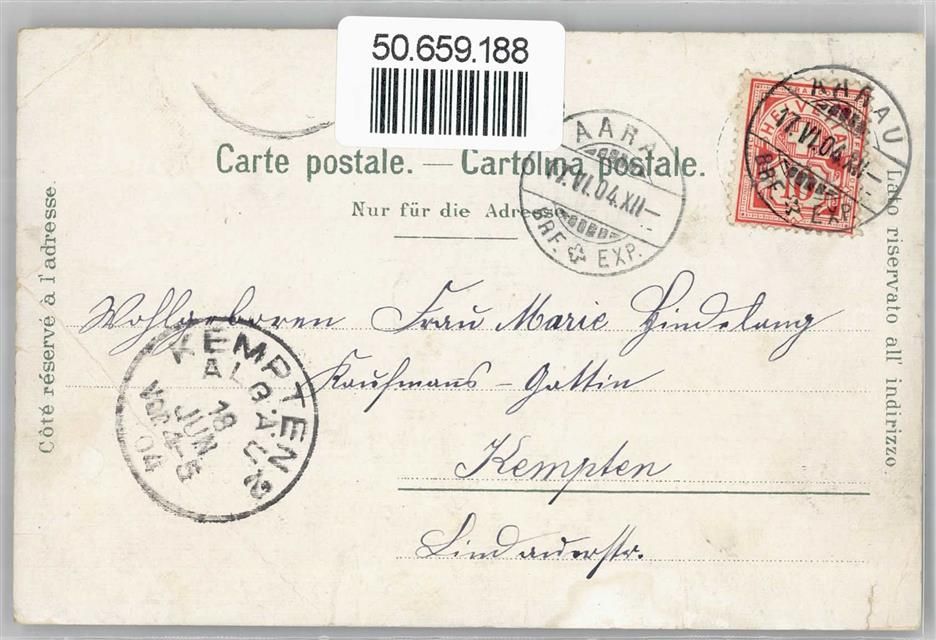 50.659.188
Carte postale. — Cartolina postale.
Nur für die Adresse
Côté réservé à l'adresse.
Lato riservato all' indirizzo.
AARAU
17.VI.04.XII—
BRF. EXP.
AARAU
17.VI.04.XII—
BRF. EXP.
10
Wohlgeboren Frau Marie Hindelang
Kaufmans-Gattin
Kempten
Lindauerstr.
KEMPTEN
ALGÄU 2
18
JUN
Vor. 4-5
04